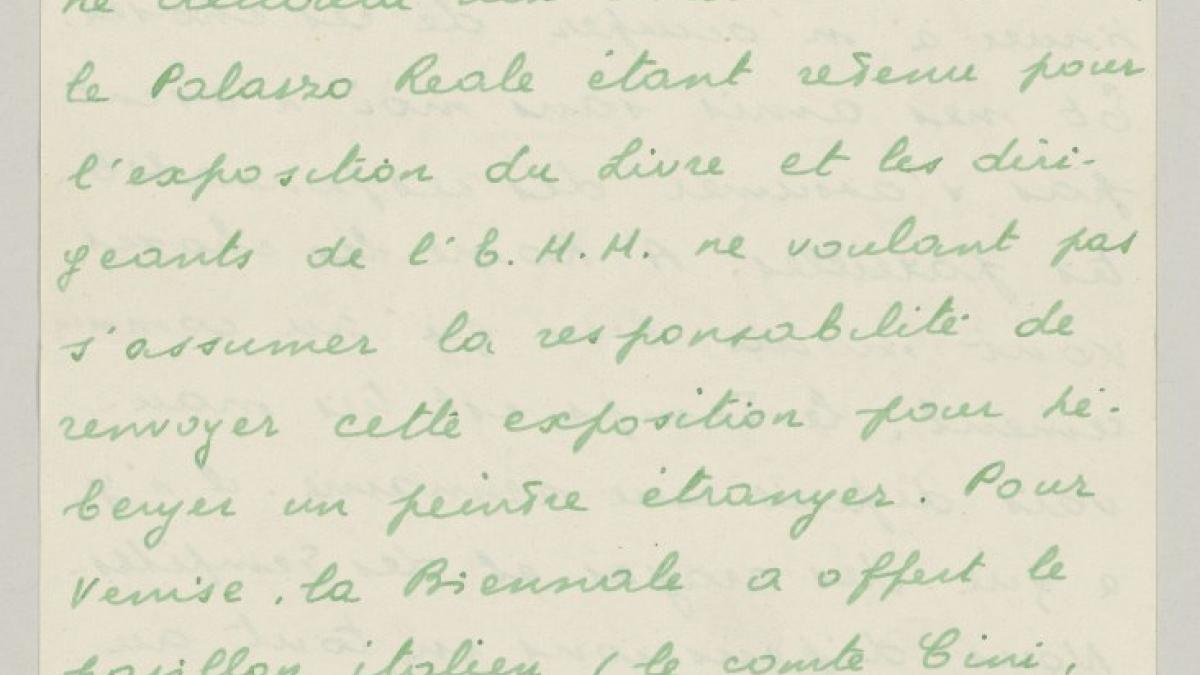 le Palazzo Reale étant retenu pour
l'exposition du Livre et les diri-
geants de l'E.M.M. ne voulant pas
s'assumer la responsabilité de
renvoyer cette exposition pour hé-
berger un peintre étranger. Pour
Venise, la Biennale a offert le
pavillon italien, le comte Cini,